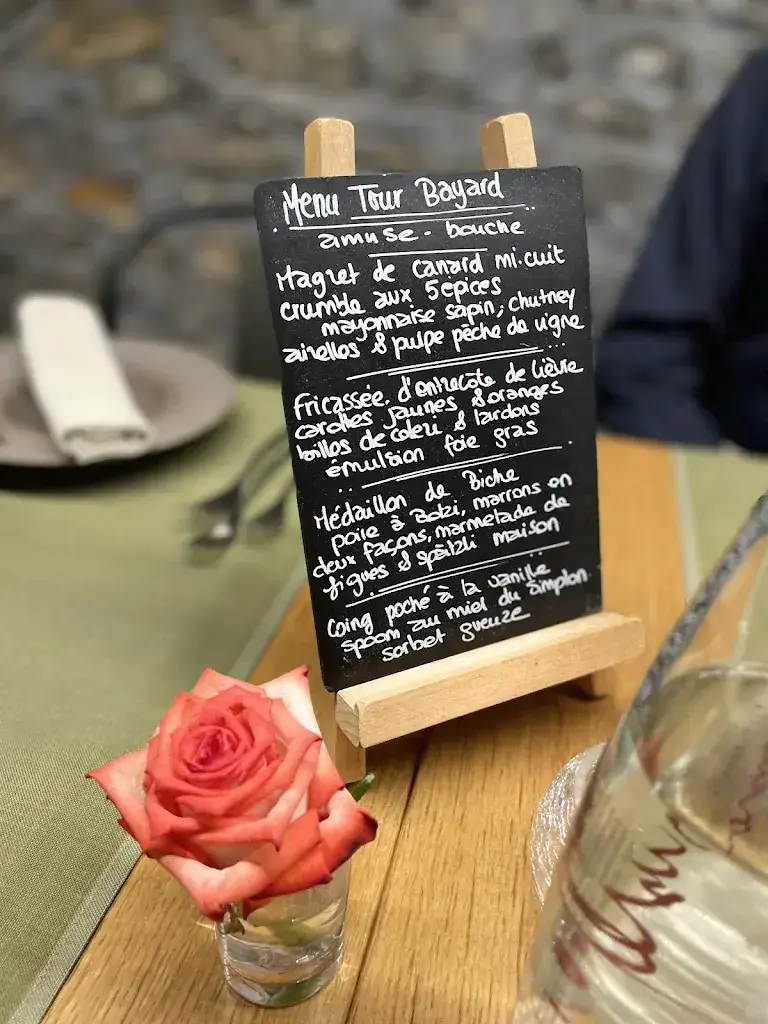 Menu Tour Bayard
amuse-bouche
Magret de canard mi.cuit
crumble aux 5 épices
mayonnaise sapin, chutney
airelles & pulpe pêche de vigne
Fricassée d'entrecôte de lièvre
carottes jaunes & oranges
billes de céleri & lardons
émulsion foie gras
Médaillon de Biche
poire à Botzi, marrons en
deux façons, marmelade de
figues & spätzli maison
Coing poché à la vanille
spoom au miel du simplon
sorbet gueuze